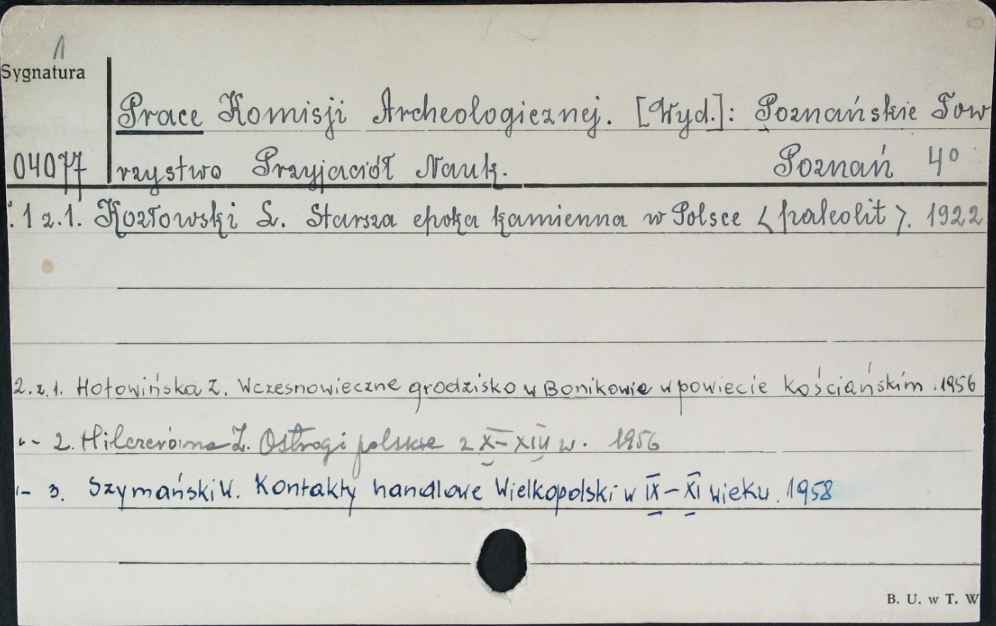 1
Sygnatura
Prace Komisji Archeologicznej. [Wyd.]: Poznańskie Tow
04077 rzystwo Przyjaciół Nauk. Poznań 4⁰
.1 z.1. Kozłowski L. Starsza epoka kamienna w Polsce <paleolit>. 1922
2.z.1. Hołowińska Z. Wczesnowieczne grodzisko w Bonikowie w powiecie kościańskim. 1956
"- 2. Hilczerówna Z. Ostrogi polskie z X-XIII w. 1956
"- 3. Szymański W. Kontakty handlowe Wielkopolski w IX-XI wieku. 1958
B. U. w T. W